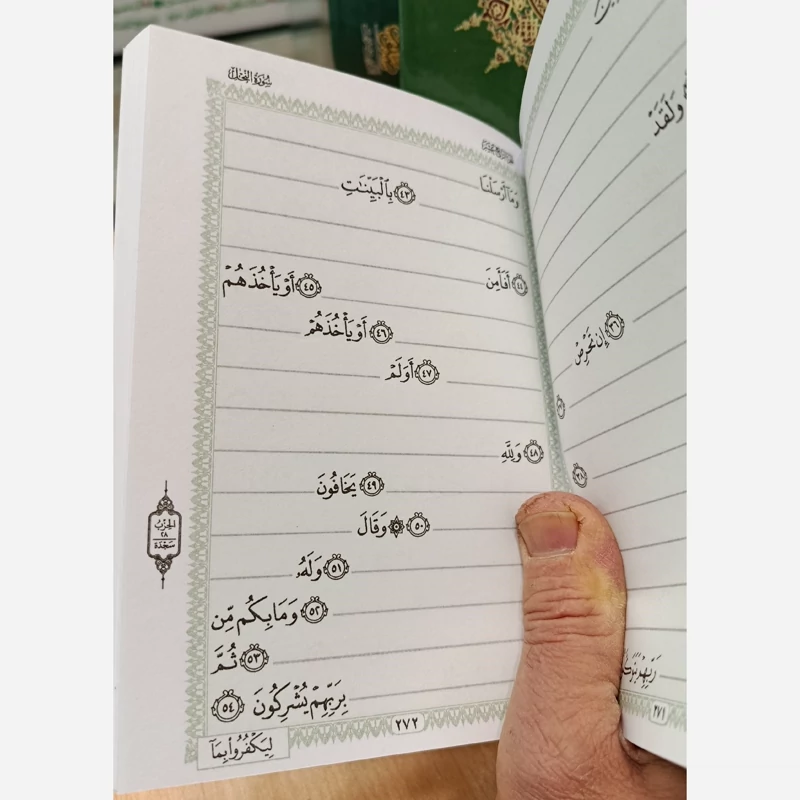 وَلَقَدْ
٣٦ إِن تَحْرِصْ
٣٨
٢٧١
سُورَةُ النَّحْلِ
وَمَآ أَرْسَلْنَا
٤٣ بِٱلْبَيِّنَٰتِ
٤٤ أَفَأَمِنَ ٤٥ أَوْ يَأْخُذَهُمْ
٤٦ أَوْ يَأْخُذَهُمْ
٤٧ أَوَلَمْ
٤٨ وَلِلَّهِ
٤٩ يَخَافُونَ
٥٠ ۞ وَقَالَ
٥١ وَلَهُۥ
٥٢ وَمَا بِكُم مِّن
٥٣ ثُمَّ
بِرَبِّهِمْ يُشْرِكُونَ ٥٤
الحِزْبُ
٢٨
سَجْدَة
٢٧٢
لِيَكْفُرُوا۟ بِمَآ